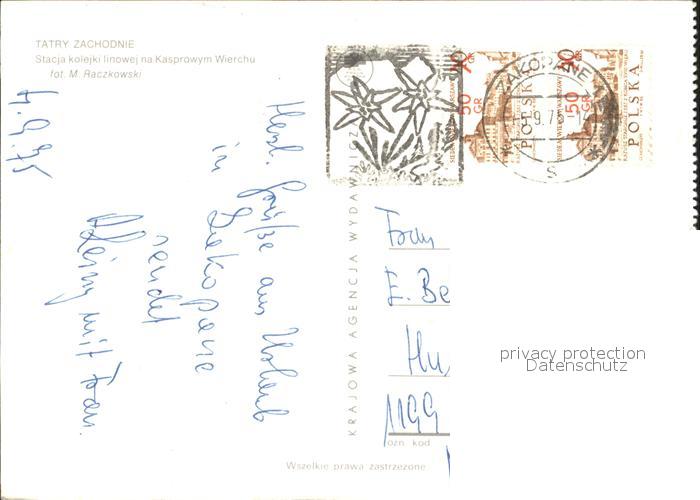 TATRY ZACHODNIE
Stacja kolejki linowej na Kasprowym Wierchu
fot. M. Raczkowski
4.9.75
Herzl. Grüße aus Urlaub
in
Zakopane
sendet
Heinz mit Frau.
KRAJOWA AGENCJA WYDAWNICZA
50 GR
POLSKA
90
50 GR
POLSKA
ZAKOPANE 1
-9.75-14
S
Frau
E. Be
Hu
1199
ozn kod
Wszelkie prawa zastrzeżone
privacy protection
Datenschutz